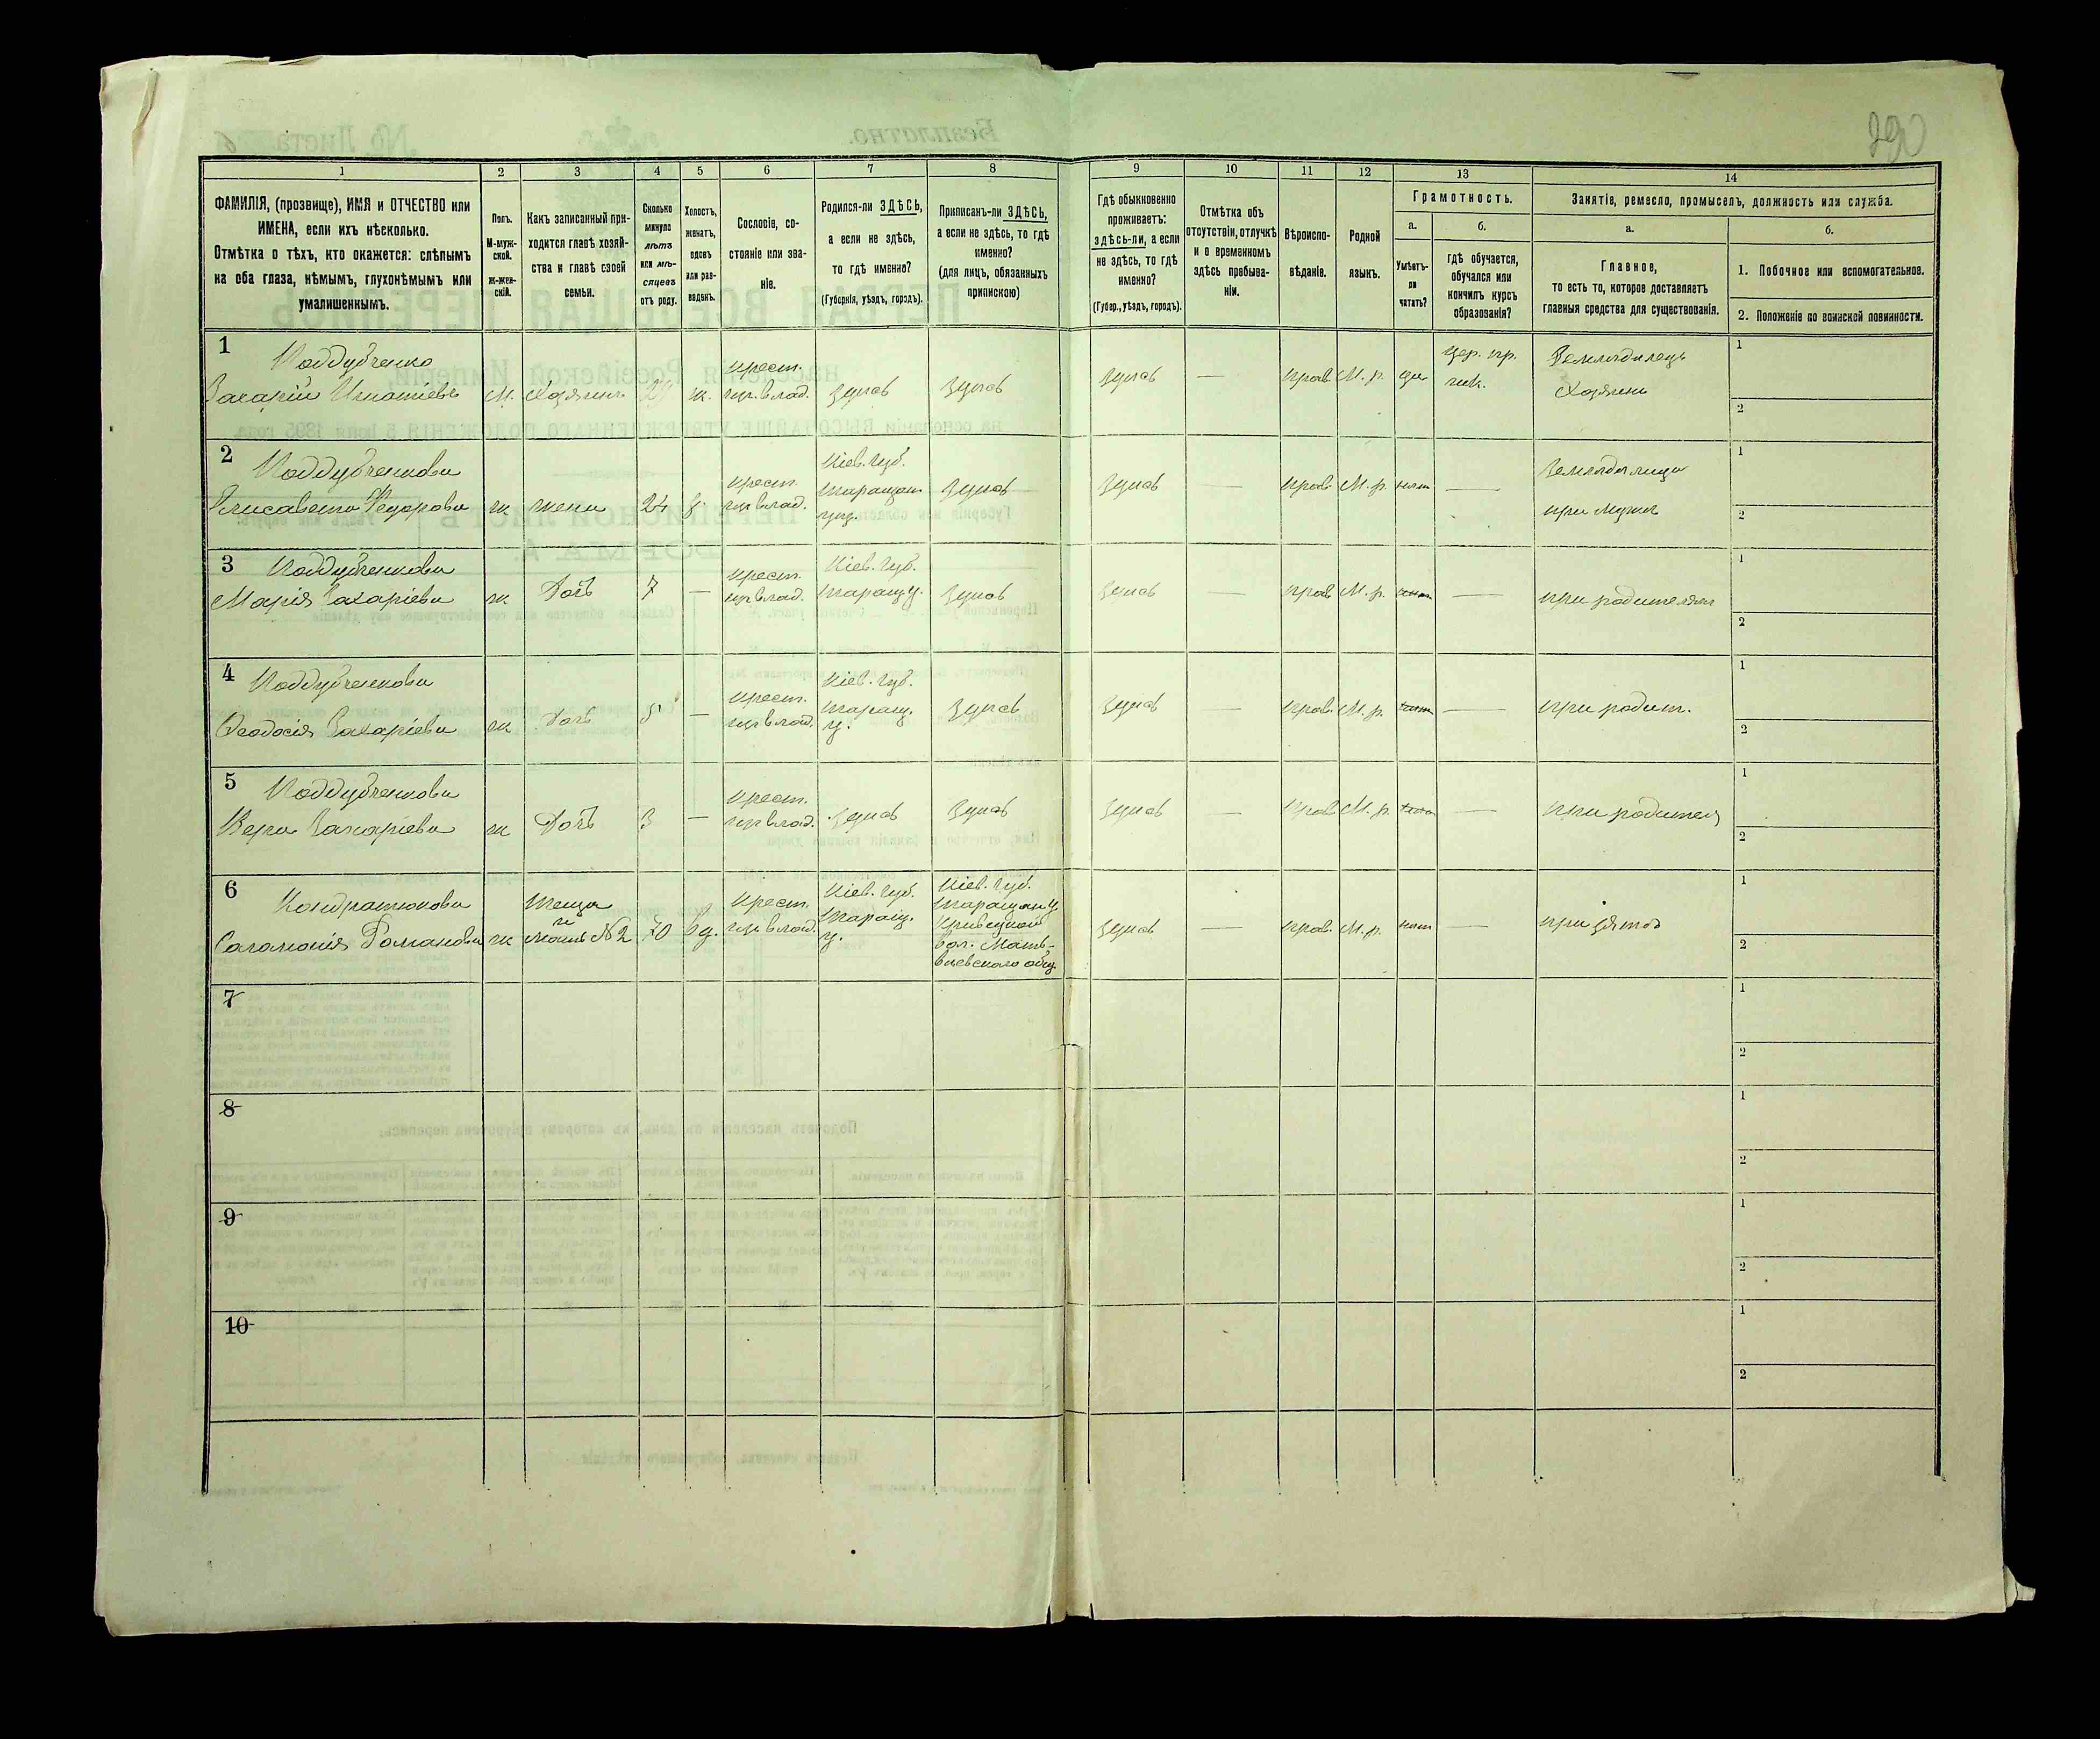 290
1
2
3
4
5
6
7
8
9
10
11
12
13
14
ФАМИЛІЯ, (прозвище), ИМЯ и ОТЧЕСТВО или
ИМЕНА, если ихъ нѣсколько.
Отмѣтка о тѣхъ, кто окажется: слѣпымъ
на оба глаза, нѣмымъ, глухонѣмымъ или
умалишеннымъ.
Полъ.
М-муж-
ской.
ж-жен-
скій.
Какъ записанный при-
ходится главѣ хозяй-
ства и главѣ своей
семьи.
Сколько
минуло
лѣтъ
или мѣ-
сяцевъ
отъ роду.
Холостъ,
женатъ,
вдовъ
или раз-
веденъ.
Сословіе, со-
стояніе или зва-
ніе.
Родился-ли ЗДѢСЬ,
а если не здѣсь,
то гдѣ именно?
(Губернія, уѣздъ, городъ).
Приписанъ-ли ЗДѢСЬ,
а если не здѣсь, то гдѣ
именно?
(для лицъ, обязанныхъ
припискою)
Гдѣ обыкновенно
проживаетъ:
здѣсь-ли, а если
не здѣсь, то гдѣ
именно?
(Губер., уѣздъ, городъ).
Отмѣтка объ
отсутствіи, отлучкѣ
и о временномъ
здѣсь пребыва-
ніи.
Вѣроиспо-
вѣданіе.
Родной
языкъ.
Грамотность.
а.
Умѣетъ-
ли
читать?
б.
гдѣ обучается,
обучался или
кончилъ курсъ
образованія?
Занятіе, ремесло, промыселъ, должность или служба.
а.
Главное,
то есть то, которое доставляетъ
главныя средства для существованія.
б.
1. Побочное или вспомогательное.
2. Положеніе по воинской повинности.
1
Поддубченко
Захарій Игнатіевъ
м.
Хозяинъ
ж.
крест.
влад.
Здѣсь
Здѣсь
Здѣсь
—
прав.
М. р.
да
цер. пр.
шк.
Земледѣлецъ
Хозяинъ
1
2
2
Поддубченкова
Елисавета Федорова
ж
жена
24
з.
крест.
влад.
Кіев. губ.
Таращан.
Здѣсь
Здѣсь
—
прав.
М. р.
нѣт
—
Земледѣлица
при мужѣ
1
2
3
Поддубченкова
Марія Захаріева
ж
Дочь
7
—
крест.
влад.
Кіев. губ.
Таращ. у.
Здѣсь
Здѣсь
—
прав.
М. р.
—
при родителях
1
2
4
Поддубченкова
Феодосія Захаріева
ж
Дочь
5
—
крест.
влад.
Кіев. губ.
Таращ.
у.
Здѣсь
Здѣсь
—
прав.
М. р.
—
при родит.
1
2
5
Поддубченкова
Вера Захаріева
ж
Дочь
3
—
крест.
влад.
Здѣсь
Здѣсь
Здѣсь
—
прав.
М. р.
—
при родител
1
2
6
Кондратюкова
Саломонія Романова
ж
Теща
и
Мать №2
70
вд.
крест.
влад.
Кіев. губ.
Таращ.
у.
Кіев. губ.
Таращан у.
вол. Мать-
віевскаго общ.
Здѣсь
—
прав.
М. р.
нѣт
при зятѣ
1
2
7
1
2
8
1
2
9
1
2
10
1
2